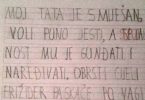 MOJ TATA JE SMIJEŠAN,
VOLI PUNO JESTI, A
NOST MU JE GUNĐATI I
NAREĐIVATI. OBRSTI CIJELI
FRIŽIDER PA SKAČE PO VAGI